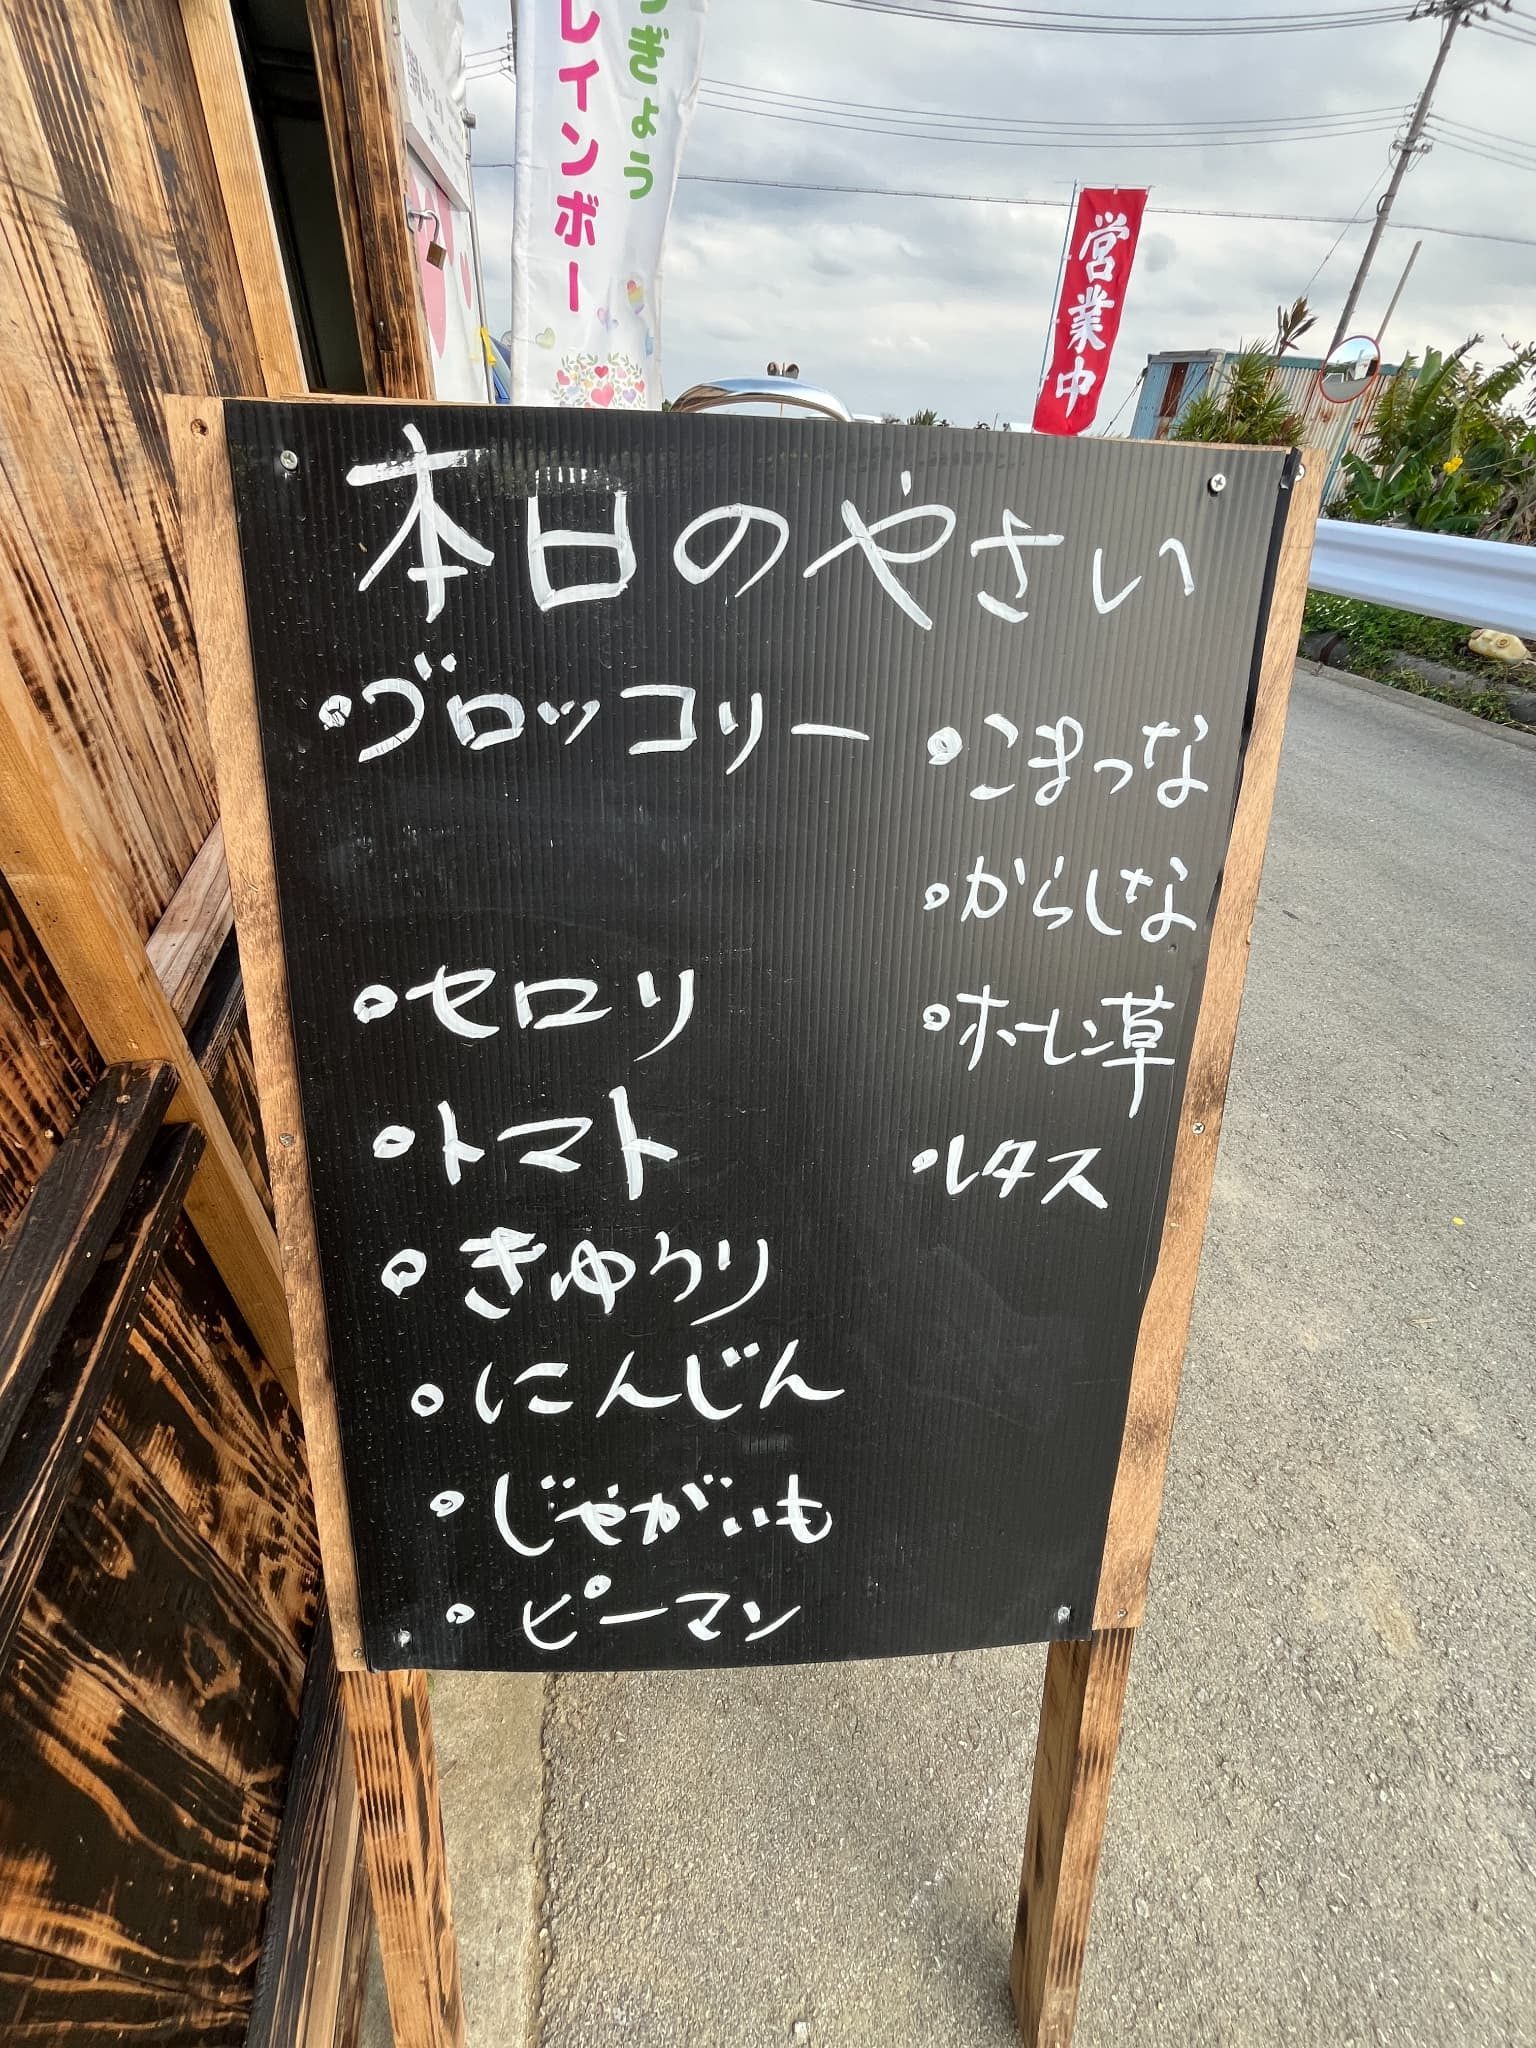 ぎょう
レインボー
営業中
本日のやさい
・ブロッコリー
・セロリ
・トマト
・きゅうり
・にんじん
・じゃがいも
・ピーマン
・こまつな
・からしな
・ホーレン草
・レタス